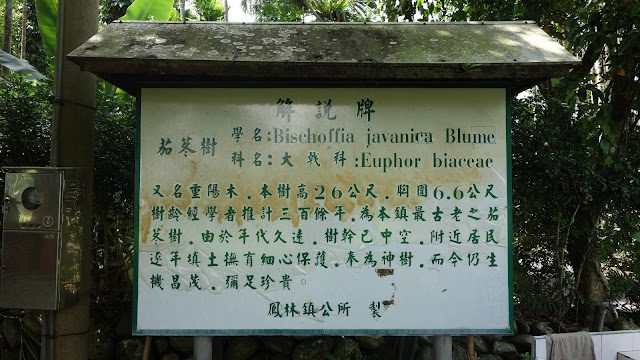 解說牌
茄苳樹
學名:Bischoffia javanica Blume
科名:大戟科:Euphor biaceae
又名重陽木．本樹高26公尺．胸圍6.6公尺
樹齡經學者推計三百餘年．為本鎮最古老之茄
苳樹．由於年代久遠．樹幹已中空．附近居民
逐年填土撫育細心保護．奉為神樹．而今仍生
機昌茂．彌足珍貴。
鳳林鎮公所 製